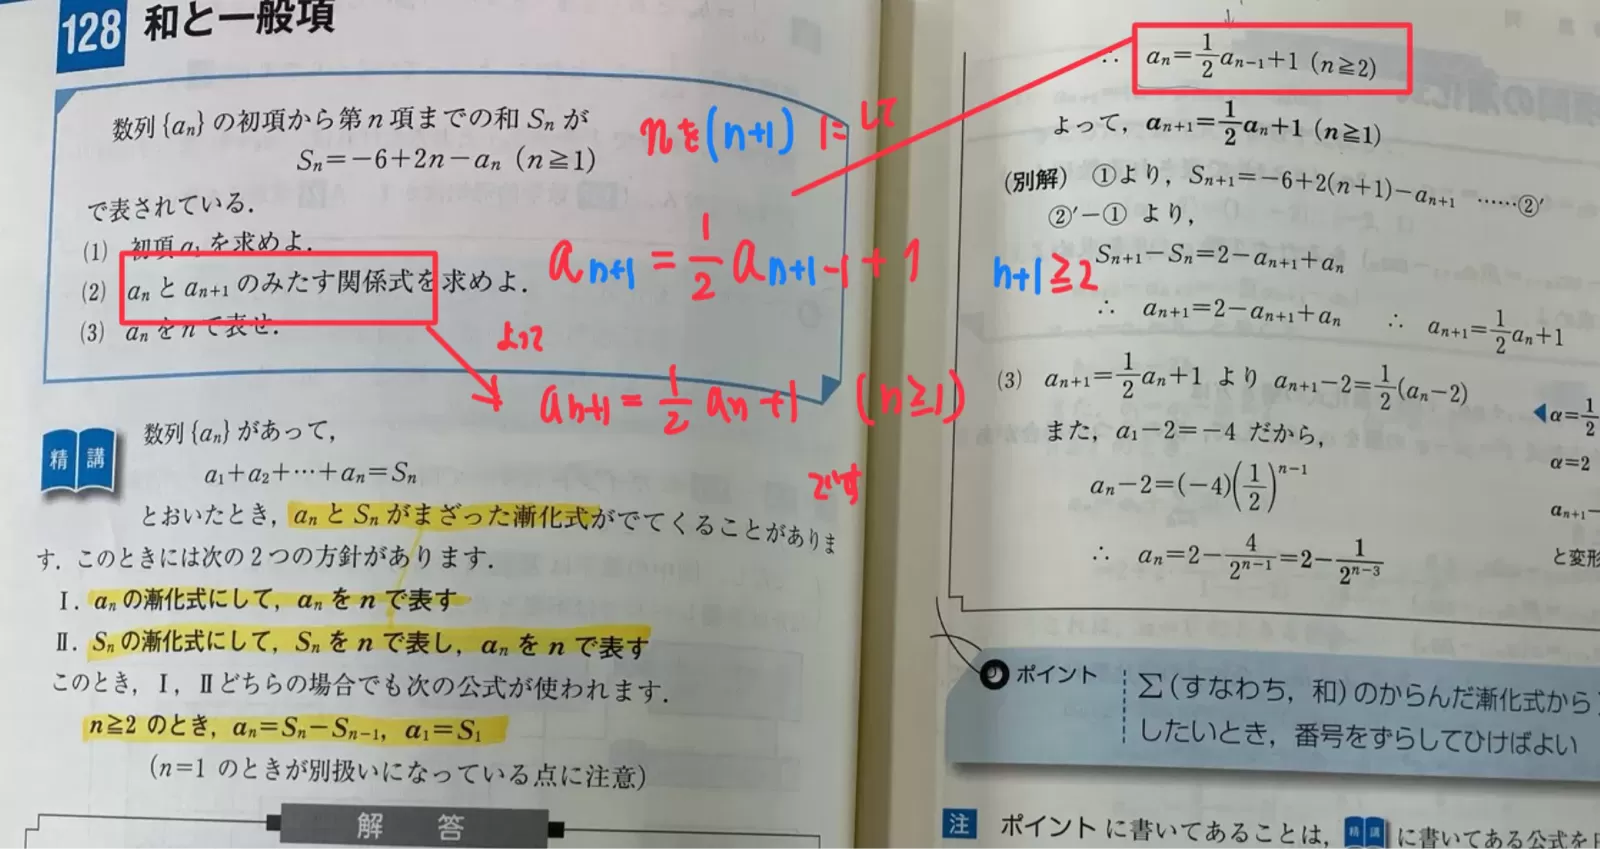 128 和と一般項
数列{aₙ}の初項から第n項までの和Sₙが
Sₙ=-6+2n-aₙ (n≧1)
で表されている.
(1) 初項a₁を求めよ.
(2) aₙとaₙ₊₁のみたす関係式を求めよ.
(3) aₙをnで表せ.
nを(n+1)にして
aₙ₊₁=1/2 aₙ₊₁₋₁+1
n+1≧2
よって
aₙ₊₁=1/2 aₙ+1 (n≧1)
です
精講
数列{aₙ}があって,
a₁+a₂+…+aₙ=Sₙ
とおいたとき, aₙとSₙがまざった漸化式がでてくることがありま
す. このときには次の2つの方針があります.
Ⅰ. aₙの漸化式にして, aₙをnで表す
Ⅱ. Sₙの漸化式にして, Sₙをnで表し, aₙをnで表す
このとき, Ⅰ, Ⅱどちらの場合でも次の公式が使われます.
n≧2のとき, aₙ=Sₙ-Sₙ₋₁, a₁=S₁
(n=1のときが別扱いになっている点に注意)
解答
∴ aₙ=1/2 aₙ₋₁+1 (n≧2)
よって, aₙ₊₁=1/2 aₙ+1 (n≧1)
(別解) ①より, Sₙ₊₁=-6+2(n+1)-aₙ₊₁ ……②′
②′-① より,
Sₙ₊₁-Sₙ=2-aₙ₊₁+aₙ
∴ aₙ₊₁=2-aₙ₊₁+aₙ ∴ aₙ₊₁=1/2 aₙ+1
(3) aₙ₊₁=1/2 aₙ+1 より aₙ₊₁-2=1/2(aₙ-2)
また, a₁-2=-4 だから,
aₙ-2=(-4)(1/2)ⁿ⁻¹
∴ aₙ=2-4/2ⁿ⁻¹=2-1/2ⁿ⁻³
◀α=1/2
α=2
aₙ₊₁-
と変形
ポイント
Σ(すなわち, 和)のからんだ漸化式から
したいとき, 番号をずらしてひけばよい
注 ポイントに書いてあることは, 精講に書いてある公式を